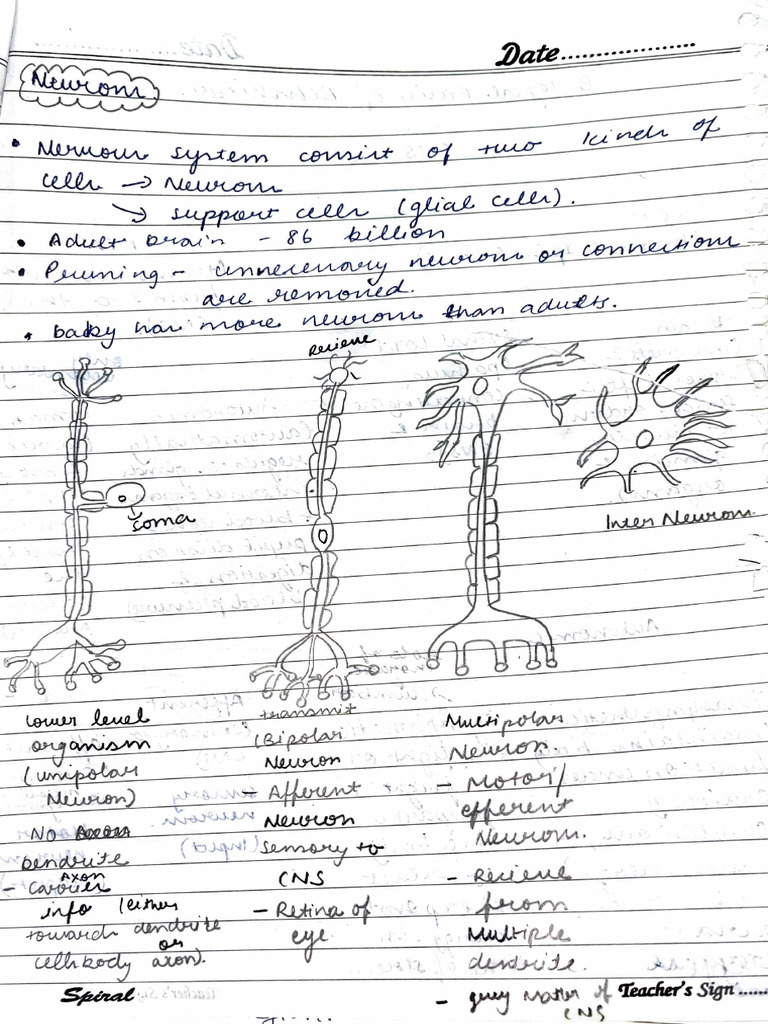 Date
Neurons
• Nervous system consist of two kinds of
cells → Neurons
→ support cells (glial cells).
• Adult brain - 86 billion
• Pruning - unnecessary neurons or connections
are removed.
• baby has more neurons than adults.
Recieve
soma
Inter Neurons
lower level
organism
(unipolar
Neuron)
No Axons
Dendrite
Axon
- carries
info (either
towards dendrite
or
cellbody axon).
transmit
(Bipolar
Neuron
- Afferent
Neuron
sensory to
CNS
- Retina of
eye
Multipolar
Neuron.
- Motor/
efferent
Neurons.
- Recieve
from
Multiple
dendrite.
- grey matter of
CNS
Spiral
Teacher's Sign